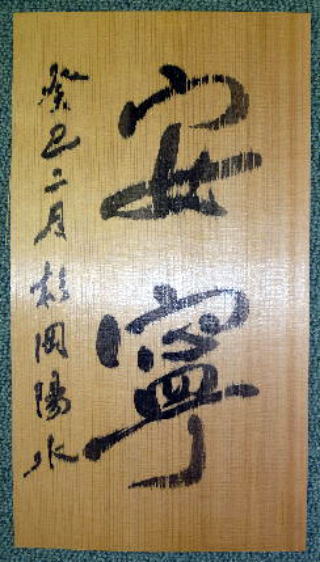 安寧
癸丑二月 杉岡陽水